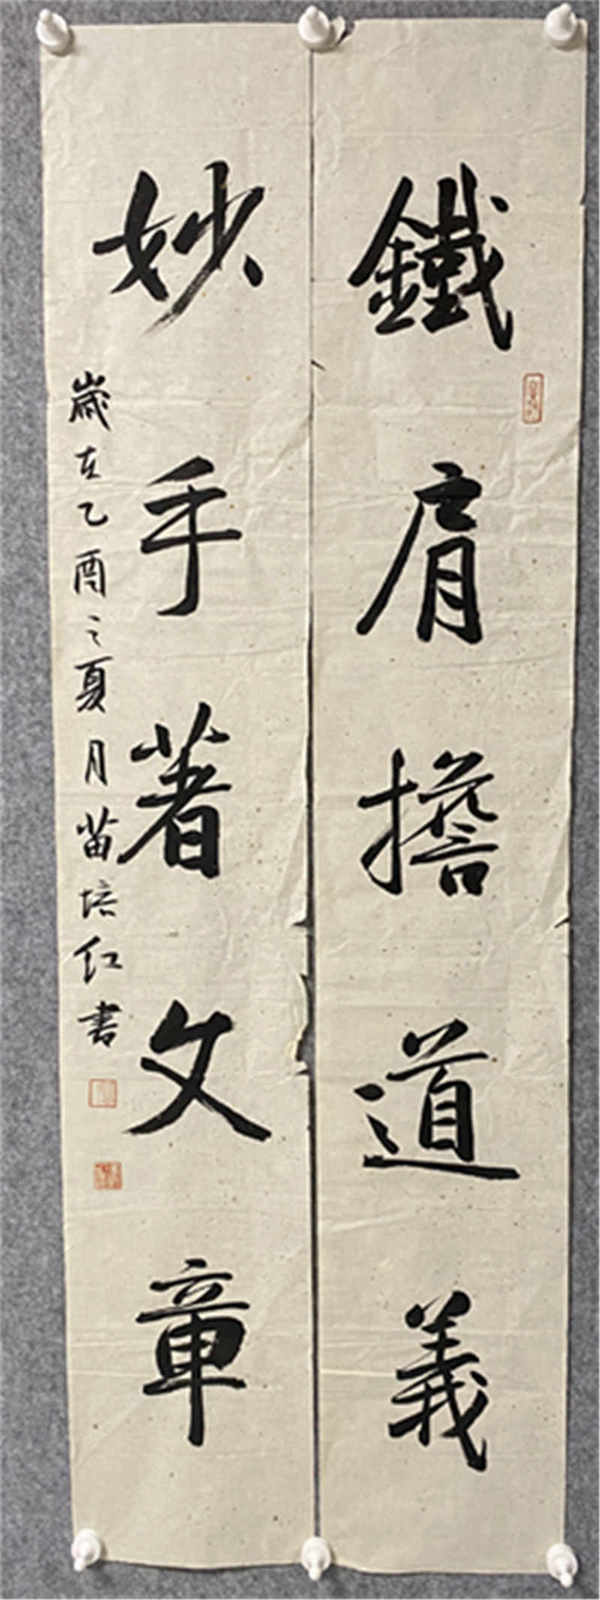 鐵肩擔道義
妙手著文章
歲在乙酉之夏月苗培红書